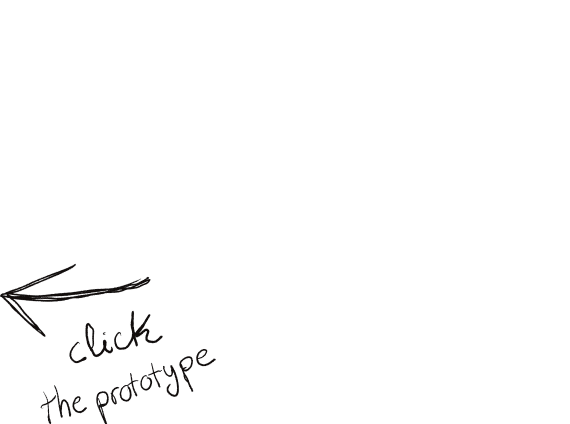 click
the prototype